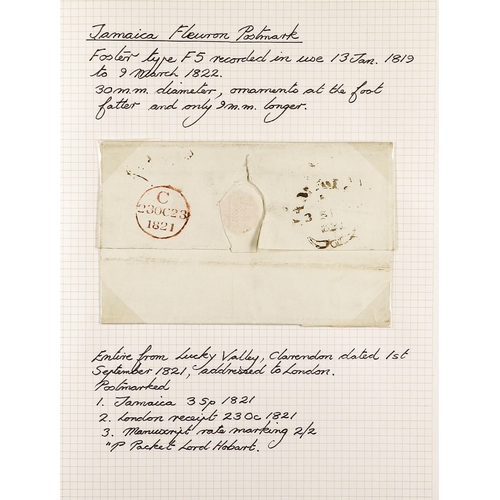 Jamaica Fleuron Postmark
Foster type F5 recorded in use 13 Jan. 1819
to 9 March 1822.
30 m.m. diameter, ornaments at the foot
fatter and only 9 m.m. longer.
C
23OC23
1821
Entire from Lucky Valley, Clarendon dated 1st
September 1821, addressed to London.
Postmarked
1. Jamaica 3 Sp 1821
2. London receipt 23 Oc 1821
3. Manuscript rate marking 2/2
"P Packet Lord Hobart.